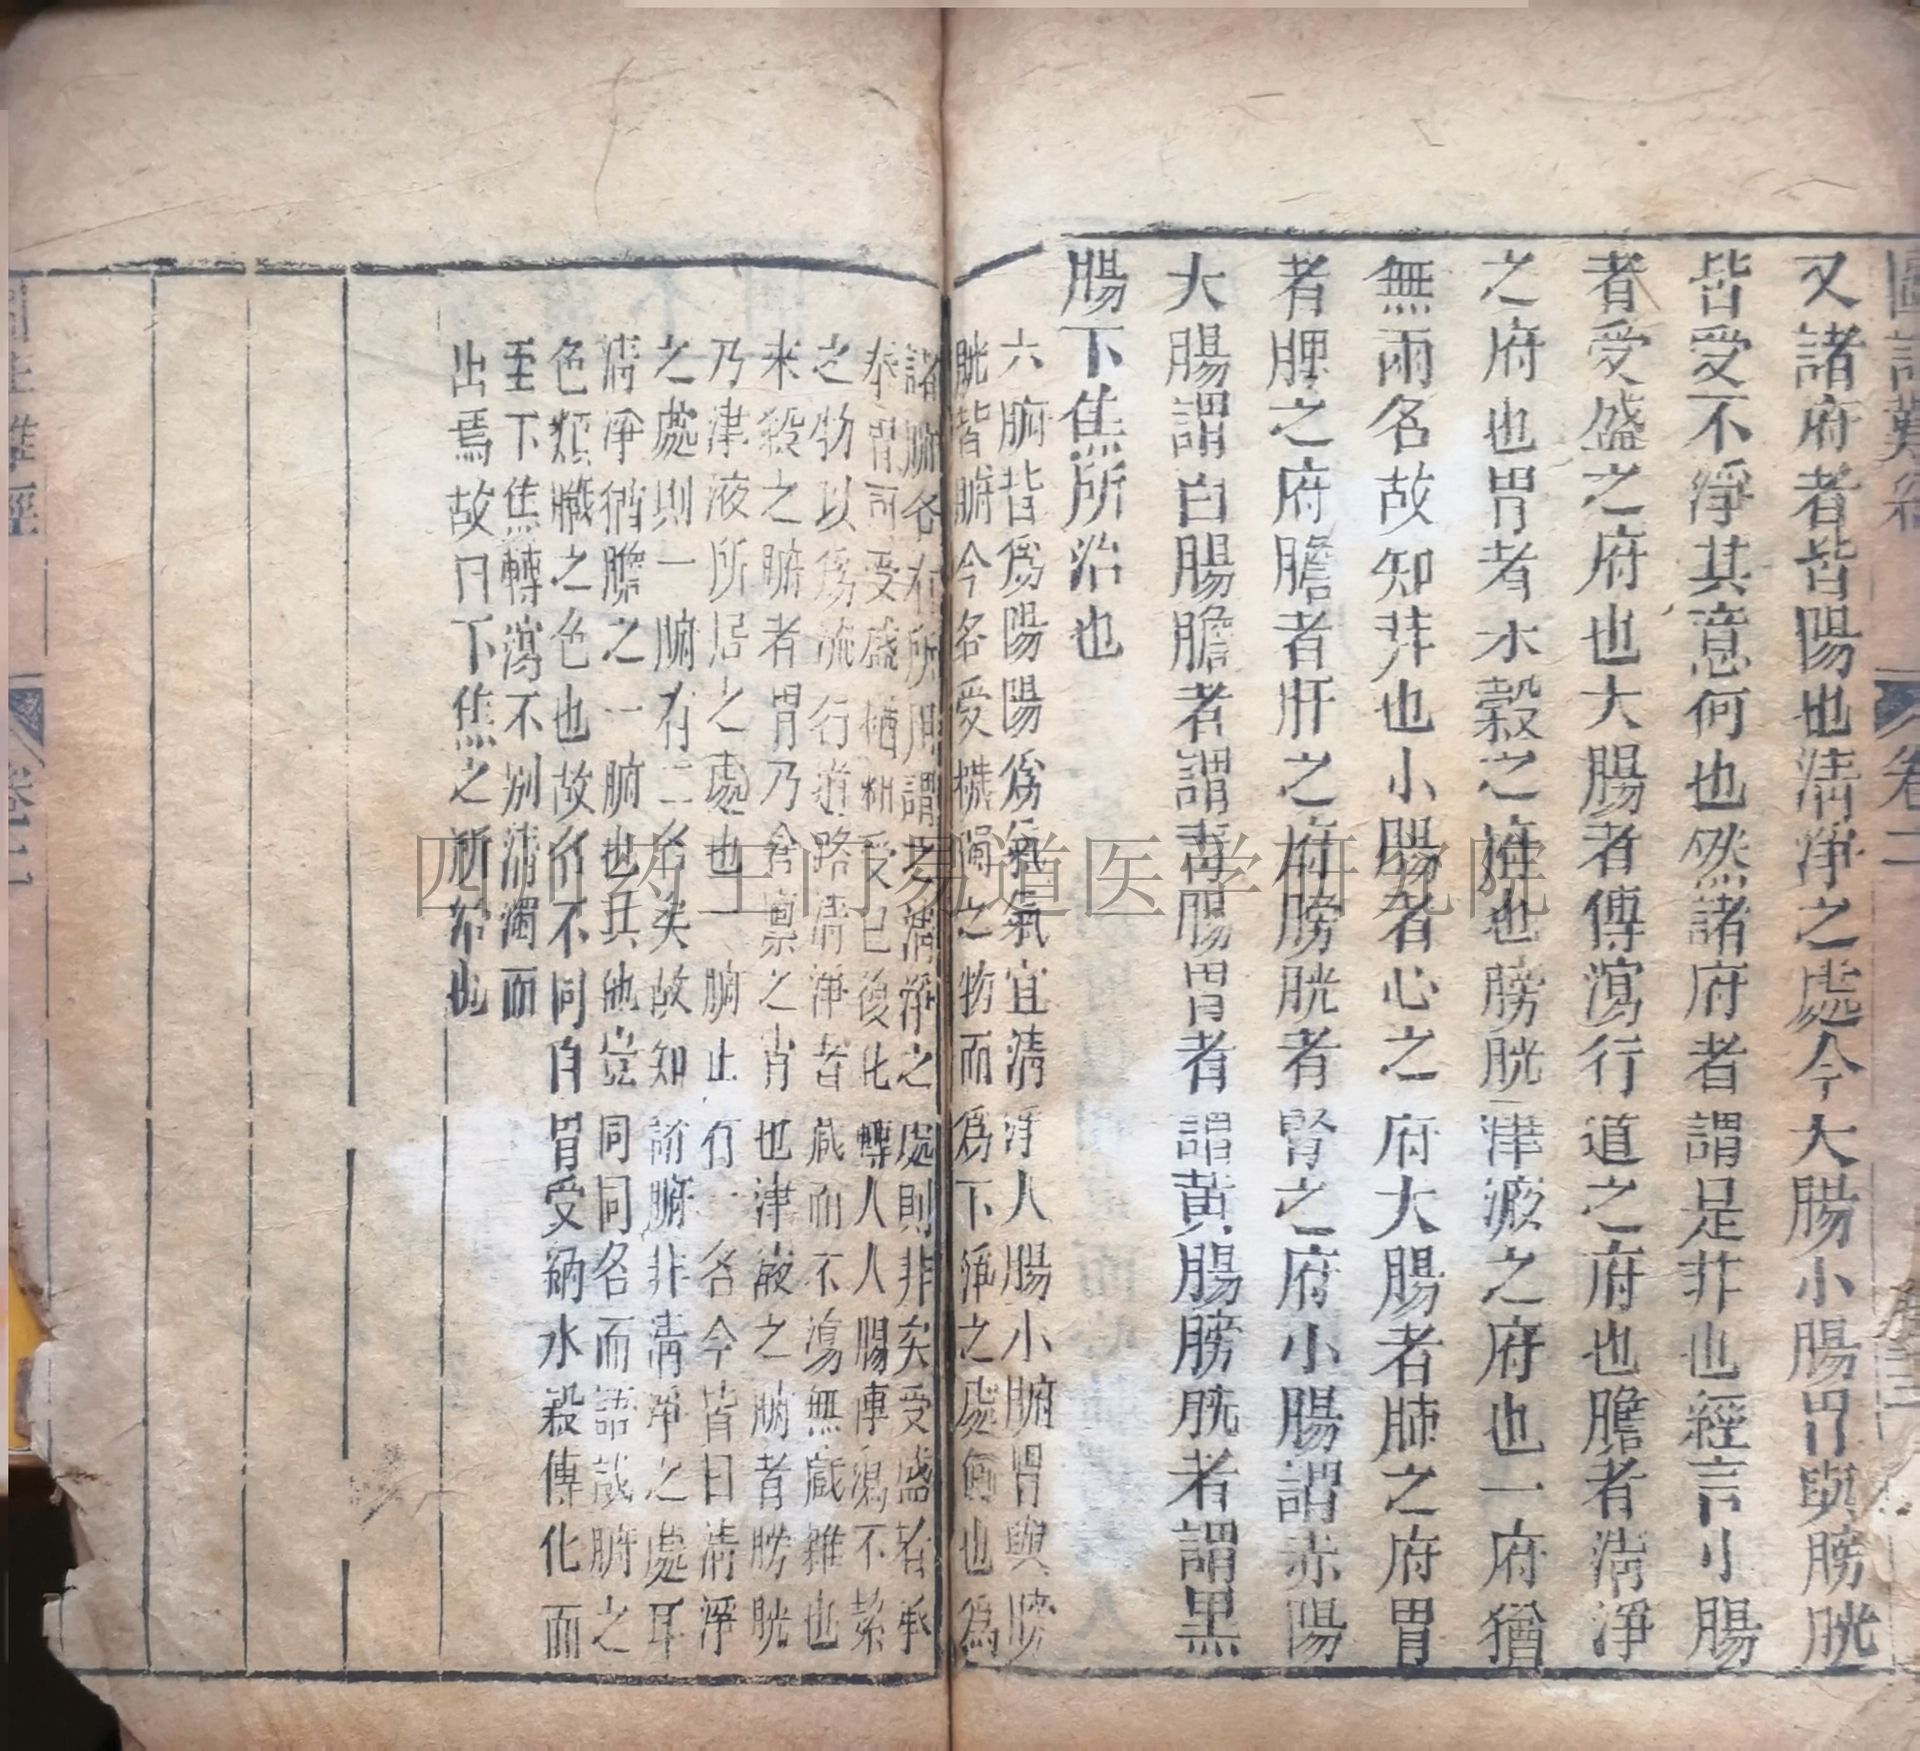 又諸府者皆陽也清净之處今大腸小腸胃與膀胱
皆受不淨其意何也然諸府者謂是非也經言小腸
者受盛之府也大腸者傳瀉行道之府也膽者清淨
之府也胃者水穀之府也膀胱津液之府也一府猶
無兩名故知非也小腸者心之府大腸者肺之府胃
者脾之府膽者肝之府膀胱者腎之府小腸謂赤腸
大腸謂白腸膽者謂青腸胃者謂黄腸膀胱者謂黑
腸下焦所治也
六腑皆爲陽陽爲氣氣宜清淨人腸小腑胃與膀
胱皆腑今名受穢濁之物而爲下淨之處何也爲
諸腑各有所用謂之清淨之處則非矣受盛者承
奉胃司受盛糟粕受已復化轉人人腸傳瀉不潔
之物以爲流行道路清淨者蔵而不瀉無蔵雜也
来穀之腑者胃乃倉禀之官也津液之腑者膀胱
乃津液所居之處也一腑止有一名今皆曰清淨
之處則一腑有二名矣故知諸腑非清净之處耳
清淨猶膽之一腑也其他豈同同名而語哉腑之
色類臟之色也故名不同自胃受納水穀傳化而
至下焦轉瀉不别清濁而
出焉故曰下焦之所治也
卷二
四川药王门易道医学研究院